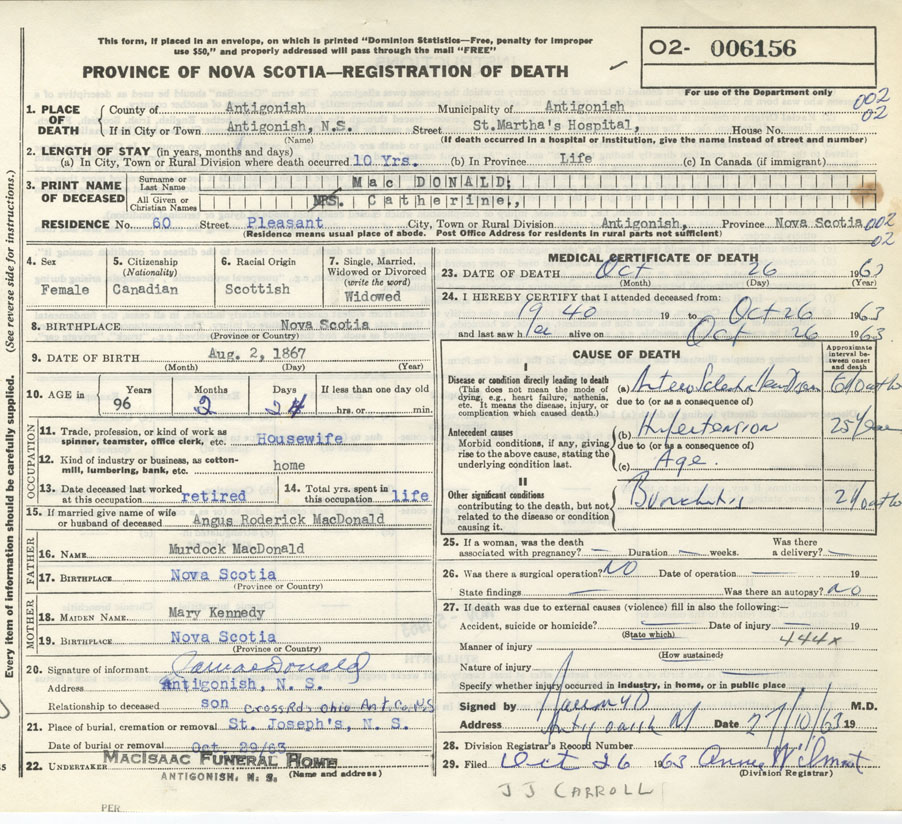 This form, if placed in an envelope, on which is printed "Dominion Statistics—Free, penalty for improper
use $50," and properly addressed will pass through the mail "FREE"
PROVINCE OF NOVA SCOTIA—REGISTRATION OF DEATH
02- 006156
For use of the Department only
002
02
1. PLACE OF DEATH
County of Antigonish Municipality of Antigonish
If in City or Town Antigonish, N.S. Street St.Martha's Hospital, House No.
(Name) (If death occurred in a hospital or institution, give the name instead of street and number)
2. LENGTH OF STAY (in years, months and days)
(a) In City, Town or Rural Division where death occurred 10 Yrs. (b) In Province Life (c) In Canada (if immigrant)
3. PRINT NAME OF DECEASED
Surname or Last Name MacDONALD;
All Given or Christian Names MRS. Catherine.,
RESIDENCE No. 60 Street Pleasant City, Town or Rural Division Antigonish, Province Nova Scotia 002
02
(Residence means usual place of abode. Post Office Address for residents in rural parts not sufficient)
4. Sex Female
5. Citizenship (Nationality) Canadian
6. Racial Origin Scottish
7. Single, Married, Widowed or Divorced (write the word) Widowed
8. BIRTHPLACE Nova Scotia
(Province or Country)
9. DATE OF BIRTH Aug. 2, 1867
(Month) (Day) (Year)
10. AGE in Years 96 Months 2 Days 24 If less than one day old hrs. or min.
OCCUPATION
11. Trade, profession, or kind of work as spinner, teamster, office clerk, etc. Housewife
12. Kind of industry or business, as cotton-mill, lumbering, bank, etc. home
13. Date deceased last worked at this occupation retired
14. Total yrs. spent in this occupation life
15. If married give name of wife or husband of deceased Angus Roderick MacDonald
FATHER
16. NAME Murdock MacDonald
17. BIRTHPLACE Nova Scotia
(Province or Country)
MOTHER
18. MAIDEN NAME Mary Kennedy
19. BIRTHPLACE Nova Scotia
(Province or Country)
20. Signature of informant
Address Antigonish, N. S.
Relationship to deceased son Cross Rds Ohio Ant. Co. N.S
21. Place of burial, cremation or removal St. Joseph's, N. S.
Date of burial or removal Oct 29/63
22. UNDERTAKER MACISAAC FUNERAL HOME
ANTIGONISH, N. S. (Name and address)
MEDICAL CERTIFICATE OF DEATH
23. DATE OF DEATH Oct 26 1963
(Month) (Day) (Year)
24. I HEREBY CERTIFY that I attended deceased from:
1940 19 to Oct 26 1963
and last saw her alive on Oct 26 1963
CAUSE OF DEATH
Approximate interval between onset and death
I
Disease or condition directly leading to death
(This does not mean the mode of dying, e.g., heart failure, asthenia, etc. It means the disease, injury, or complication which caused death.)
(a)
due to (or as a consequence of)
Antecedent causes
Morbid conditions, if any, giving rise to the above cause, stating the underlying condition last.
(b) Hypertension 25
due to (or as a consequence of)
(c) Age.
II
Other significant conditions
contributing to the death, but not related to the disease or condition causing it.
Bronchitis
25. If a woman, was the death associated with pregnancy? — Duration — weeks. Was there a delivery? —
26. Was there a surgical operation? NO Date of operation — 19
State findings — Was there an autopsy? No
27. If death was due to external causes (violence) fill in also the following:—
Accident, suicide or homicide? — Date of injury — 19
(State which)
444x
Manner of injury
(How sustained)
Nature of injury
Specify whether injury occurred in industry, in home, or in public place
Signed by M.D.
Address Date 27/10/63 19
28. Division Registrar's Record Number
29. Filed Oct 26 1963 Anne Wilmot
(Division Registrar)
J J CARROLL
PER
Every item of information should be carefully supplied. (See reverse side for instructions.)